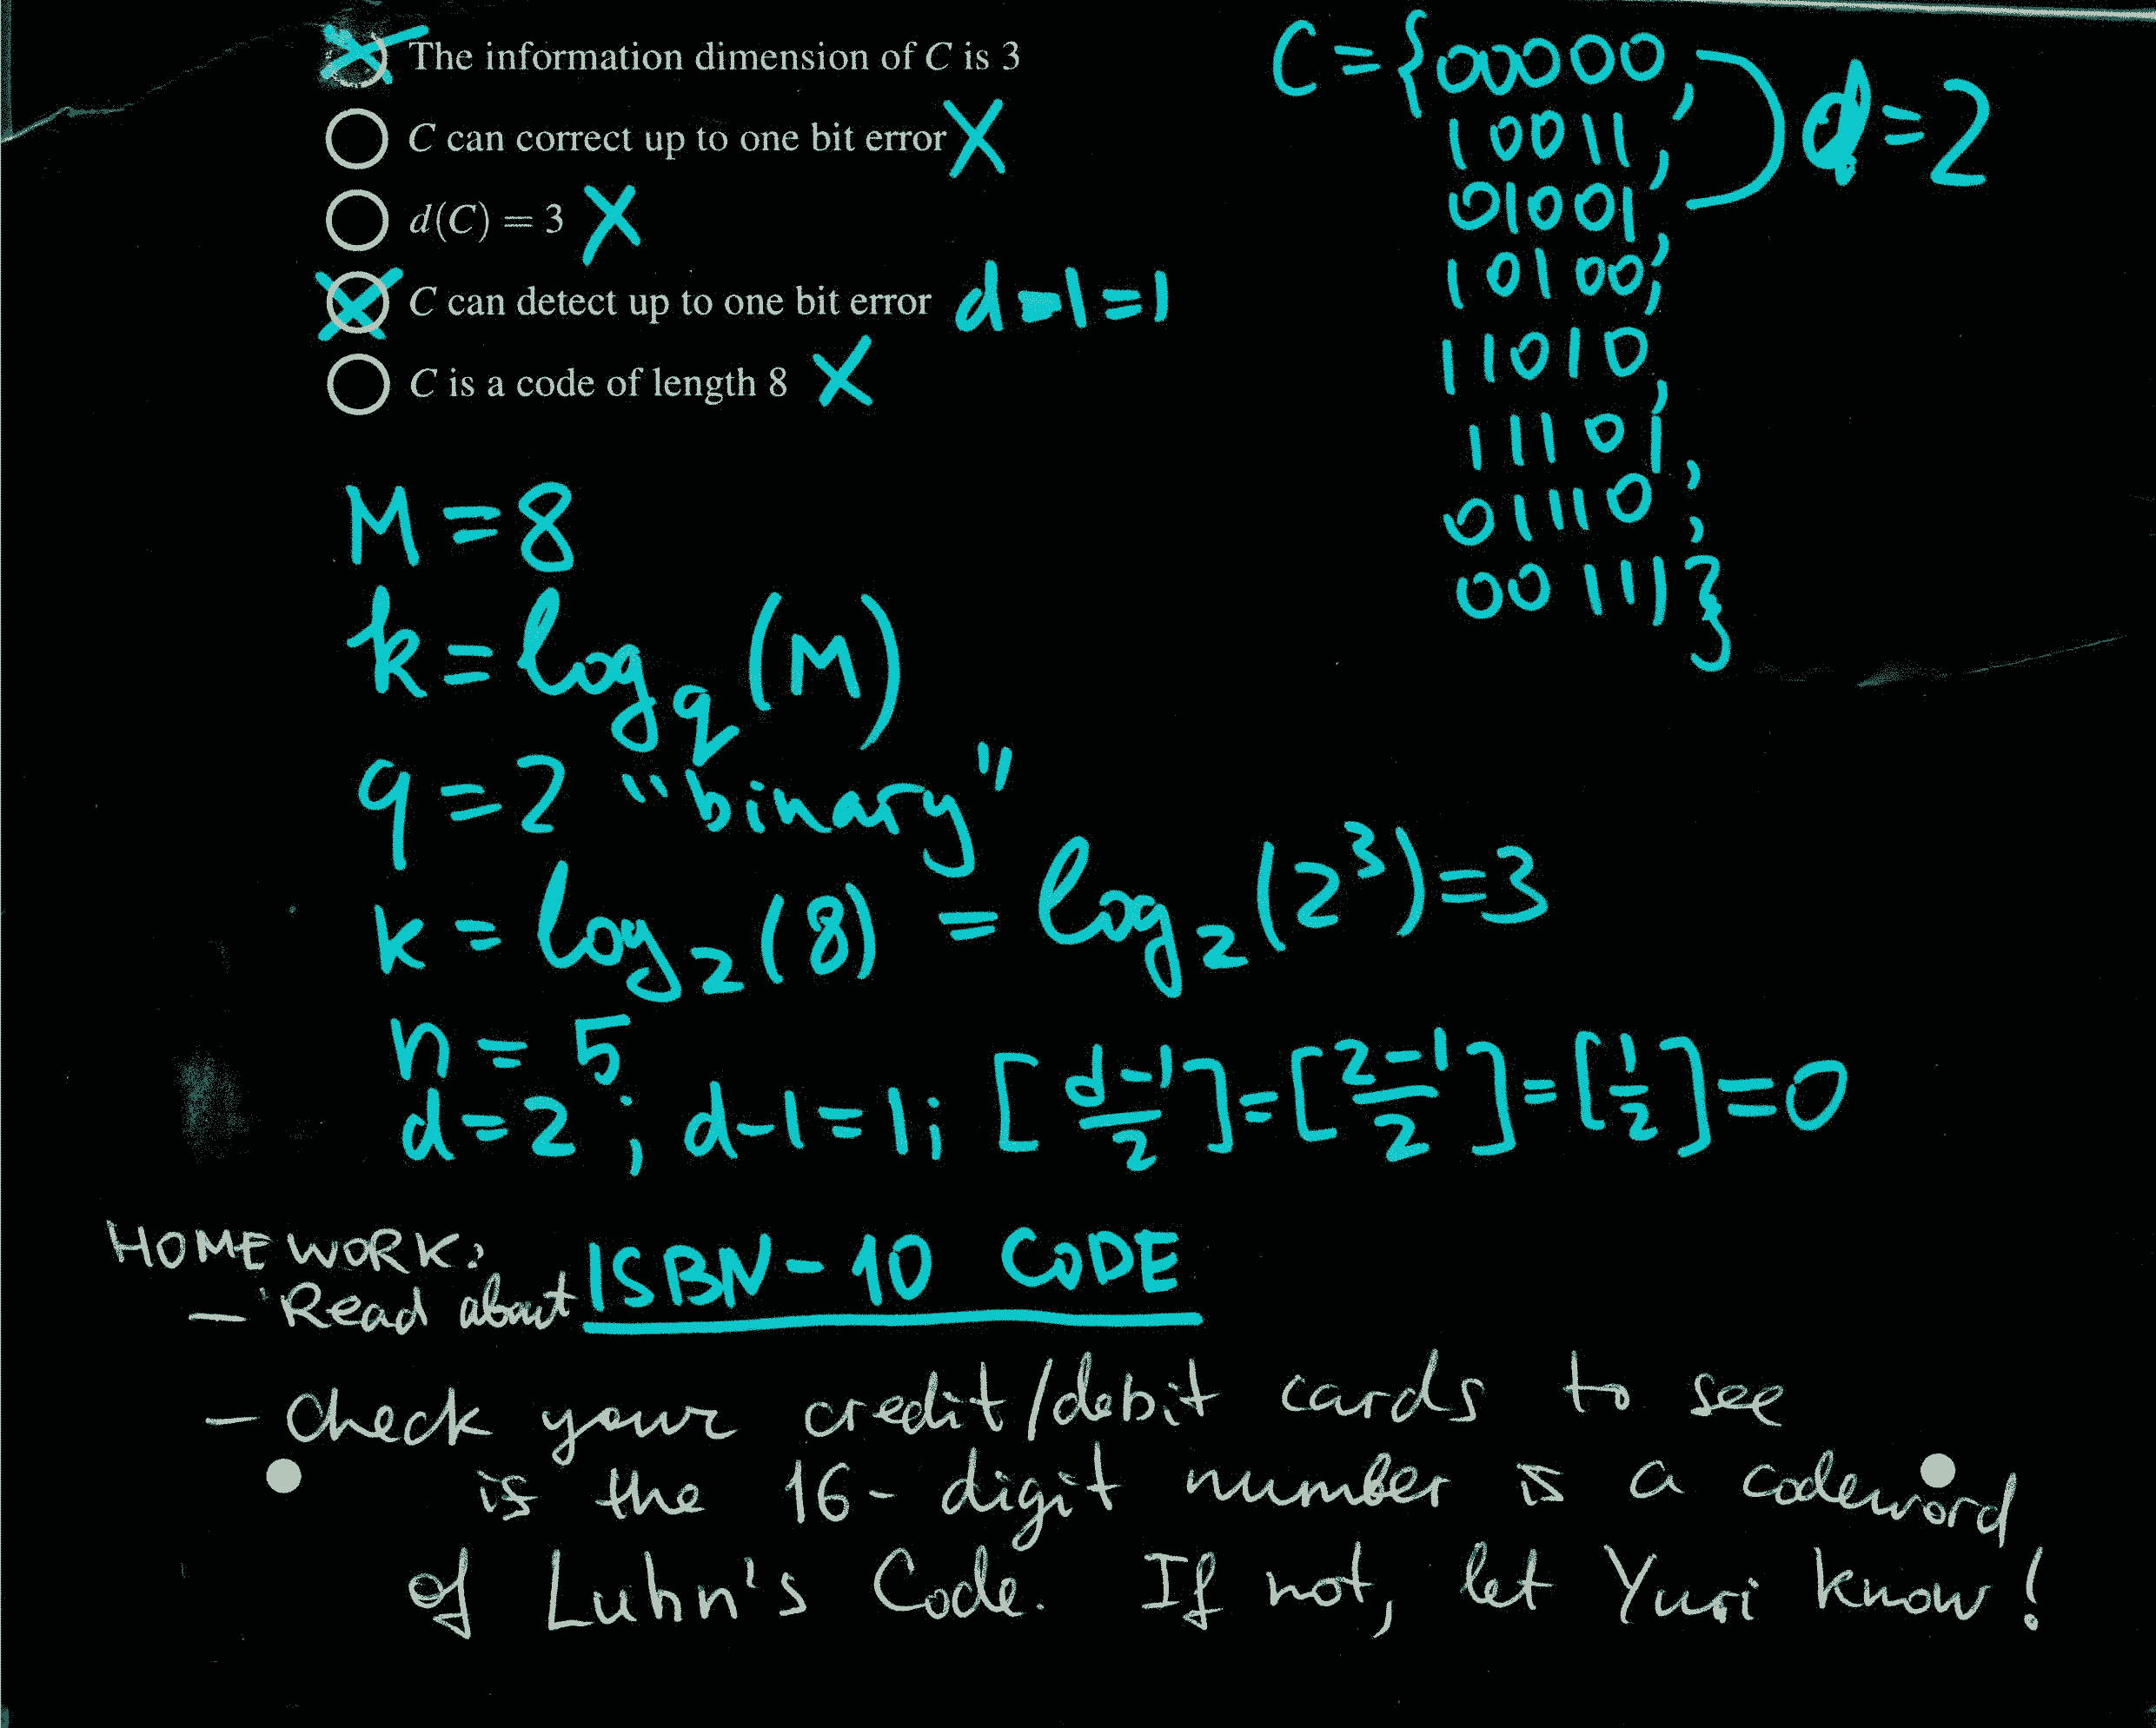 The information dimension of C is 3
C can correct up to one bit error X
d(C) = 3 X
C can detect up to one bit error d-1=1
C is a code of length 8 X
C={00000,
10011,
01001,
10100,
11010,
11101,
01110,
00111}
d=2
M=8
k=log_q(M)
q=2 "binary"
k=log₂(8) = log₂(2³)=3
n=5
d=2; d-1=1; [d-1/2]=[2-1/2]=[1/2]=0
HOMEWORK:
- Read about ISBN-10 CODE
- Check your credit/debit cards to see
is the 16-digit number is a codeword
of Luhn's Code. If not, let Yuri know!